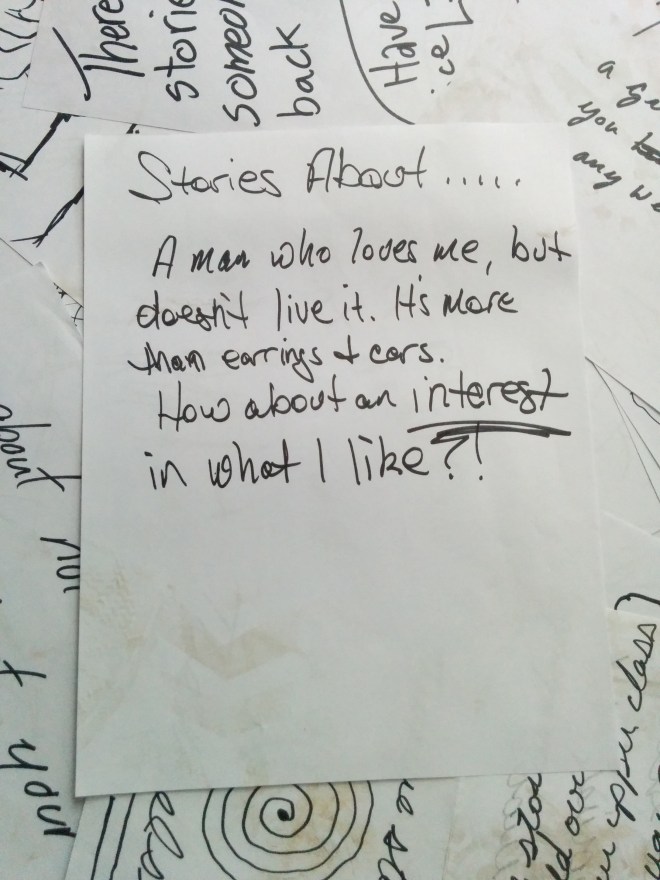 Stories About.....
A man who loves me, but
doesn't live it. It's more
than earrings & cars.
How about an interest
in what I like?!
There
storie
someon
back
Have
ice L
a
you
any we
about
upper class